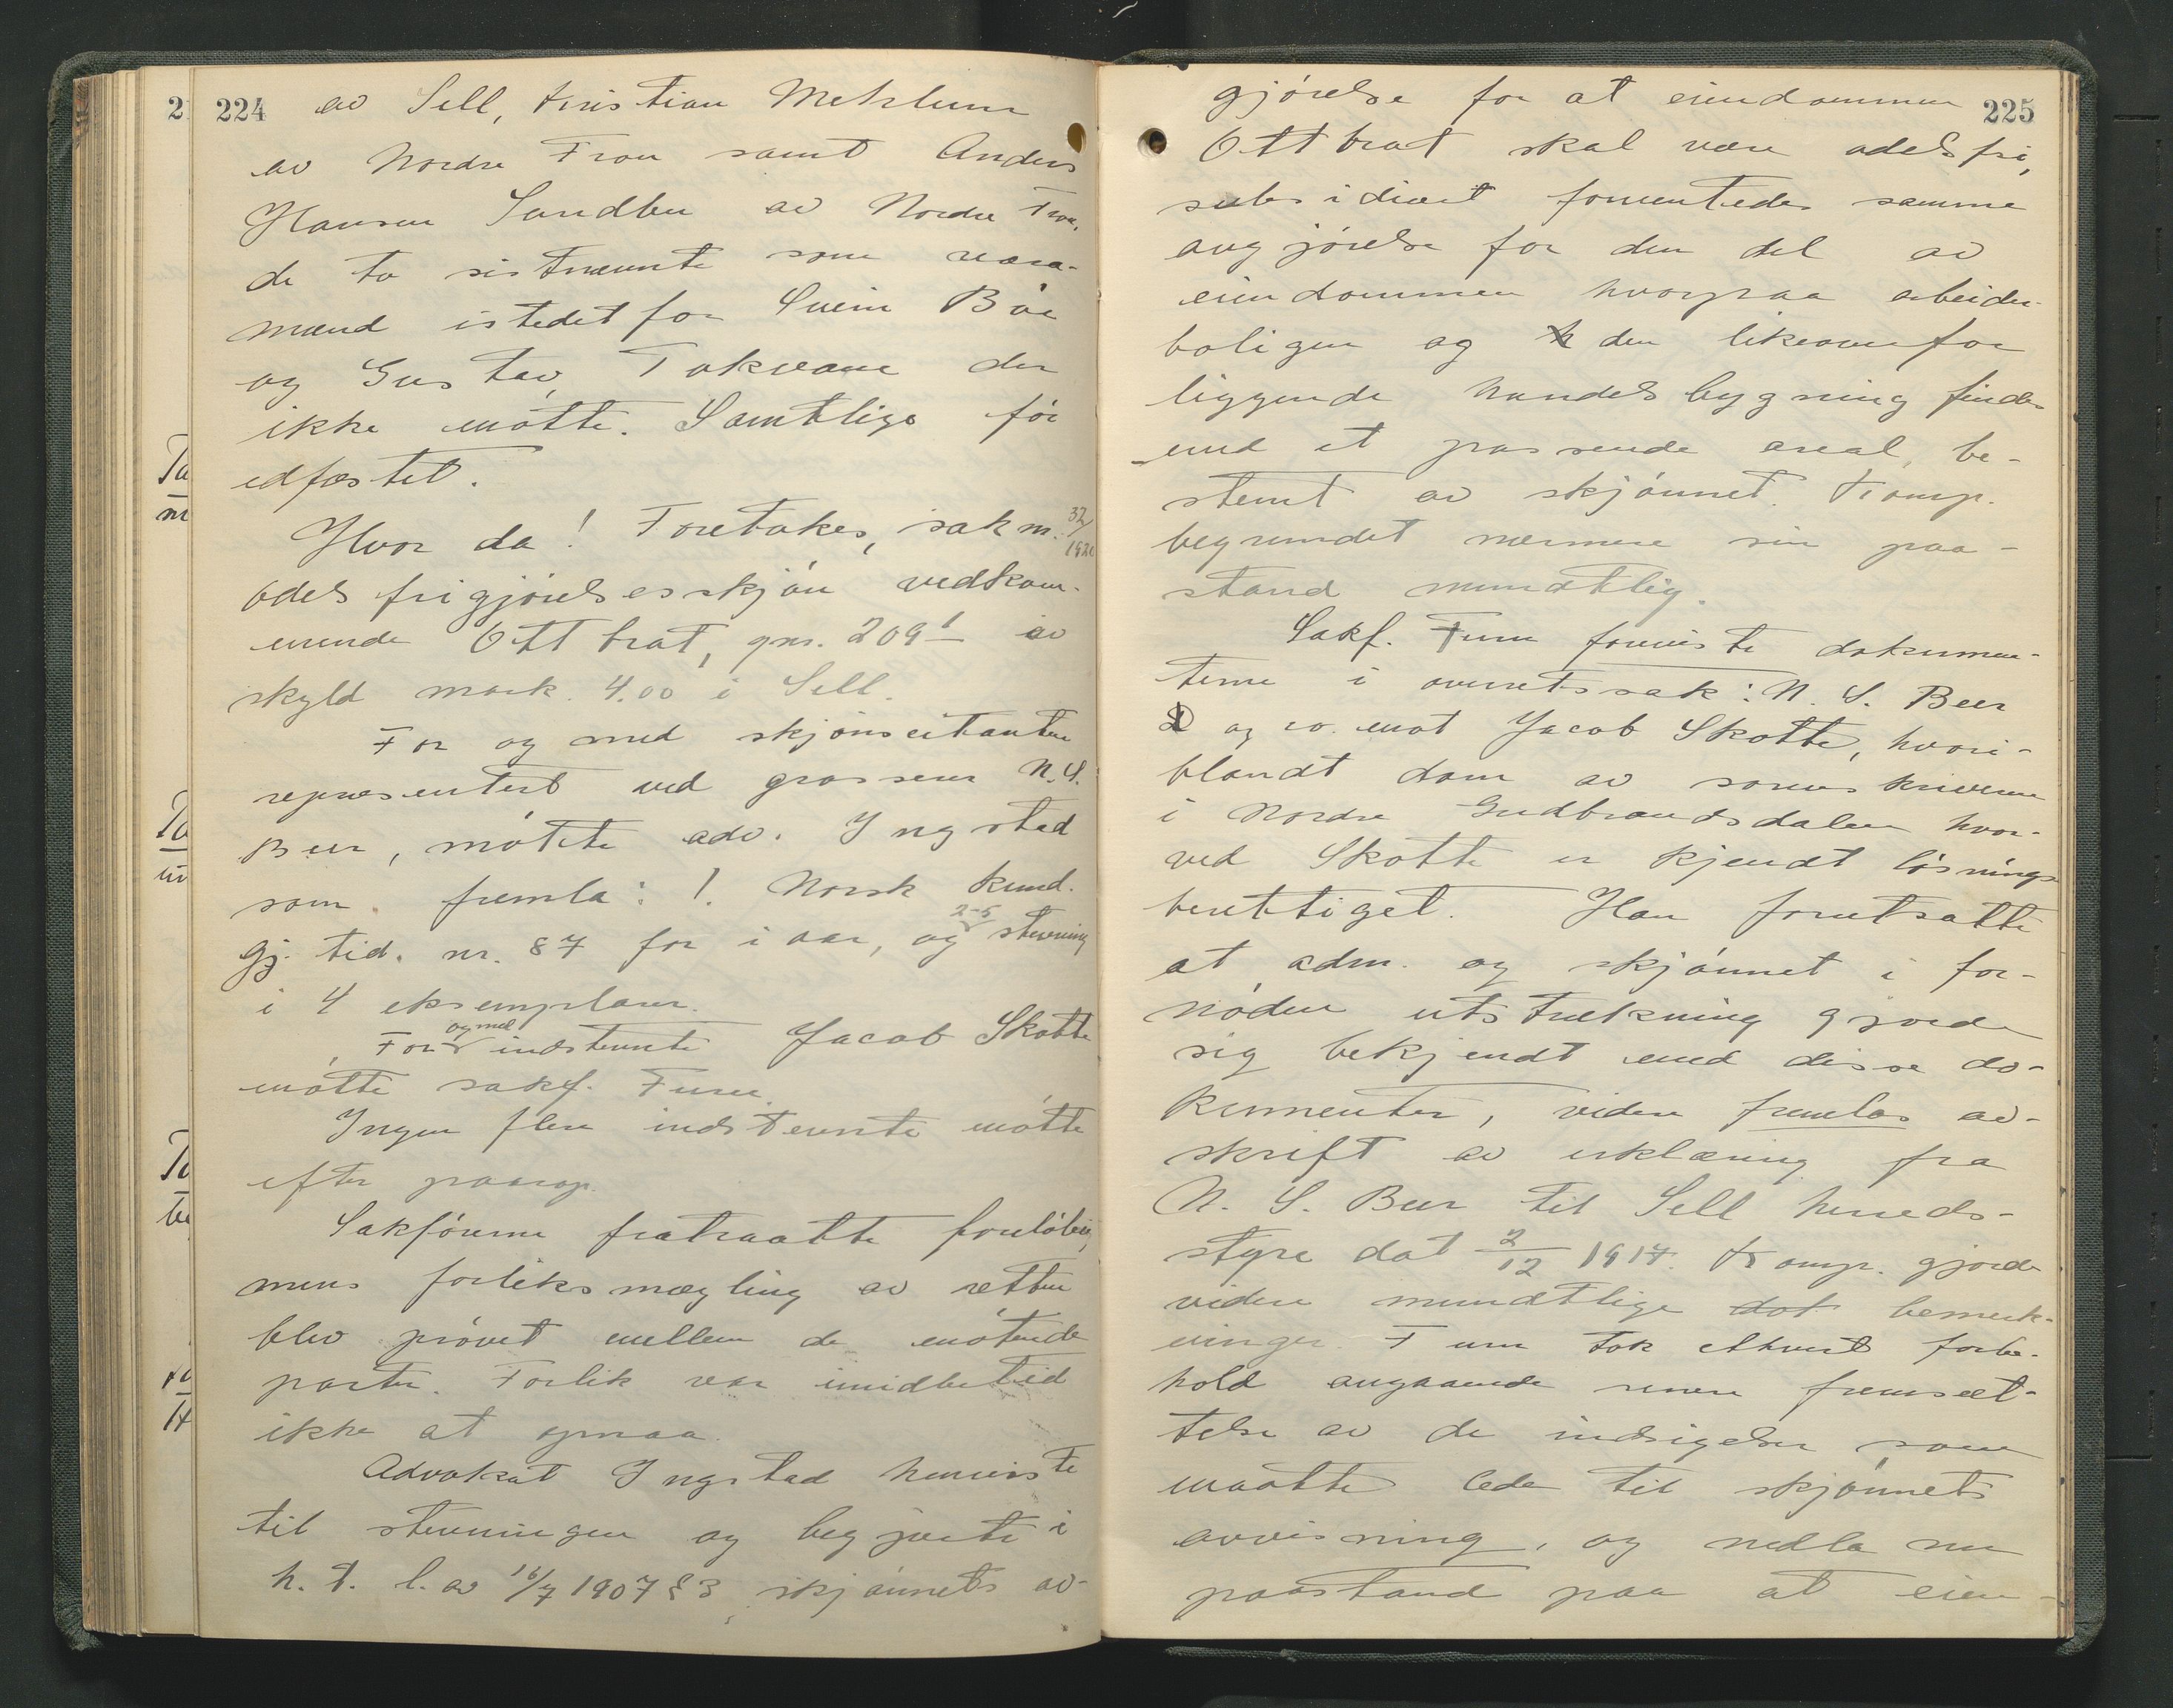 224
av Sell, Kristian Mehlum
av Nordre Fron samt Anders
Hansen Sandbu av Nordre Fron,
de to sistnævnte som vara-
mænd istedetfor Svein Böe
og Gustav Tokvam der
ikke møtte. Samtlige før
edfæstet.
Hvor da! Foretakes, sak nr. 32/1920
odelsfrigjørelsesskjøn vedkom-
mende Ottbrat, gnr. 209 1 av
skyld mark 4.00 i Sell.
For og med skjønscitanten
repræsentert ved grosserer N. S.
Beer, møtte adv. Ingstad
som fremla: 1. Norsk kund.
gj. tid. nr. 87 for i aar, og 2-5 stevning
i 4 eksemplarer.
For og med indstevnte Jacob Skotte
møtte sakf. Furu.
Ingen flere indstevnte møtte
efter paarop.
Sakførerne fratraatte foreløbig,
mens forliksmægling av retten
blev prøvet mellem de møtende
parter. Forlik var imidlertid
ikke at opnaa.
Advokat Ingstad henviste
til stevningen og begjærte i
h. t. l. av 16/7 1907 § 3 skjønnets av-
225
gjørelse for at eiendommen
Ottbrat skal være odelsfri,
subsidiært forventedes samme
avgjørelse for den del av
eiendommen hvorpaa arbeider-
boligen og den likeoverfor
liggende handelsbygning findes
med et passende areal, be-
stemt av skjønnet. Komp.
begrundet nærmere sin paa-
stand mundtlig.
Sakf. Furu foreviste dokumen-
terne i overretssak: N. S. Beer
og co. mot Jacob Skotte, hvori-
blandt dom av sorenskriveren
i Nordre Gudbrandsdalen hvor-
ved Skotte er kjendt løsnings-
berettiget. Han forutsatte
at adm. og skjønnet i for-
nøden utstrækning gjorde
sig bekjendt med disse do-
kumenter, videre fremlas av-
skrift av erklæring fra
N. S. Beer til Sell hereds-
styre dat 2/12 1917. Komp. gjorde
videre mundtlige dot bemerk-
ninger. Furu tok ethvert forbe-
hold angaaende senere fremsæt-
telse av de indsigelser som
maatte lede til skjønnets
avvisning, og nedla nu
paastand paa at eien-